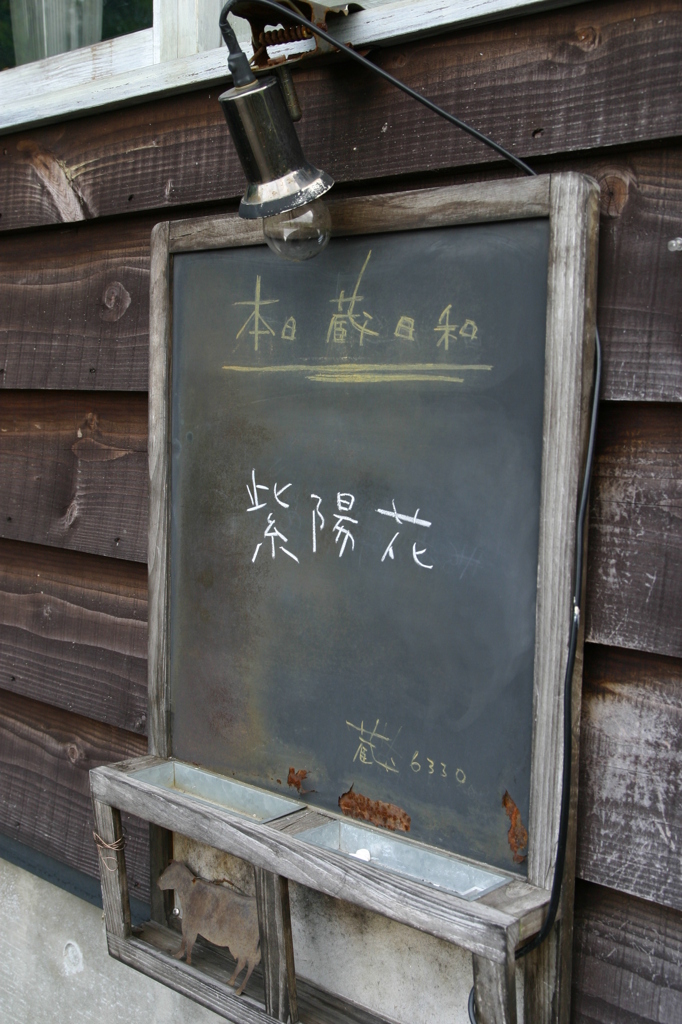 本日蔵日和
紫陽花
蔵6330